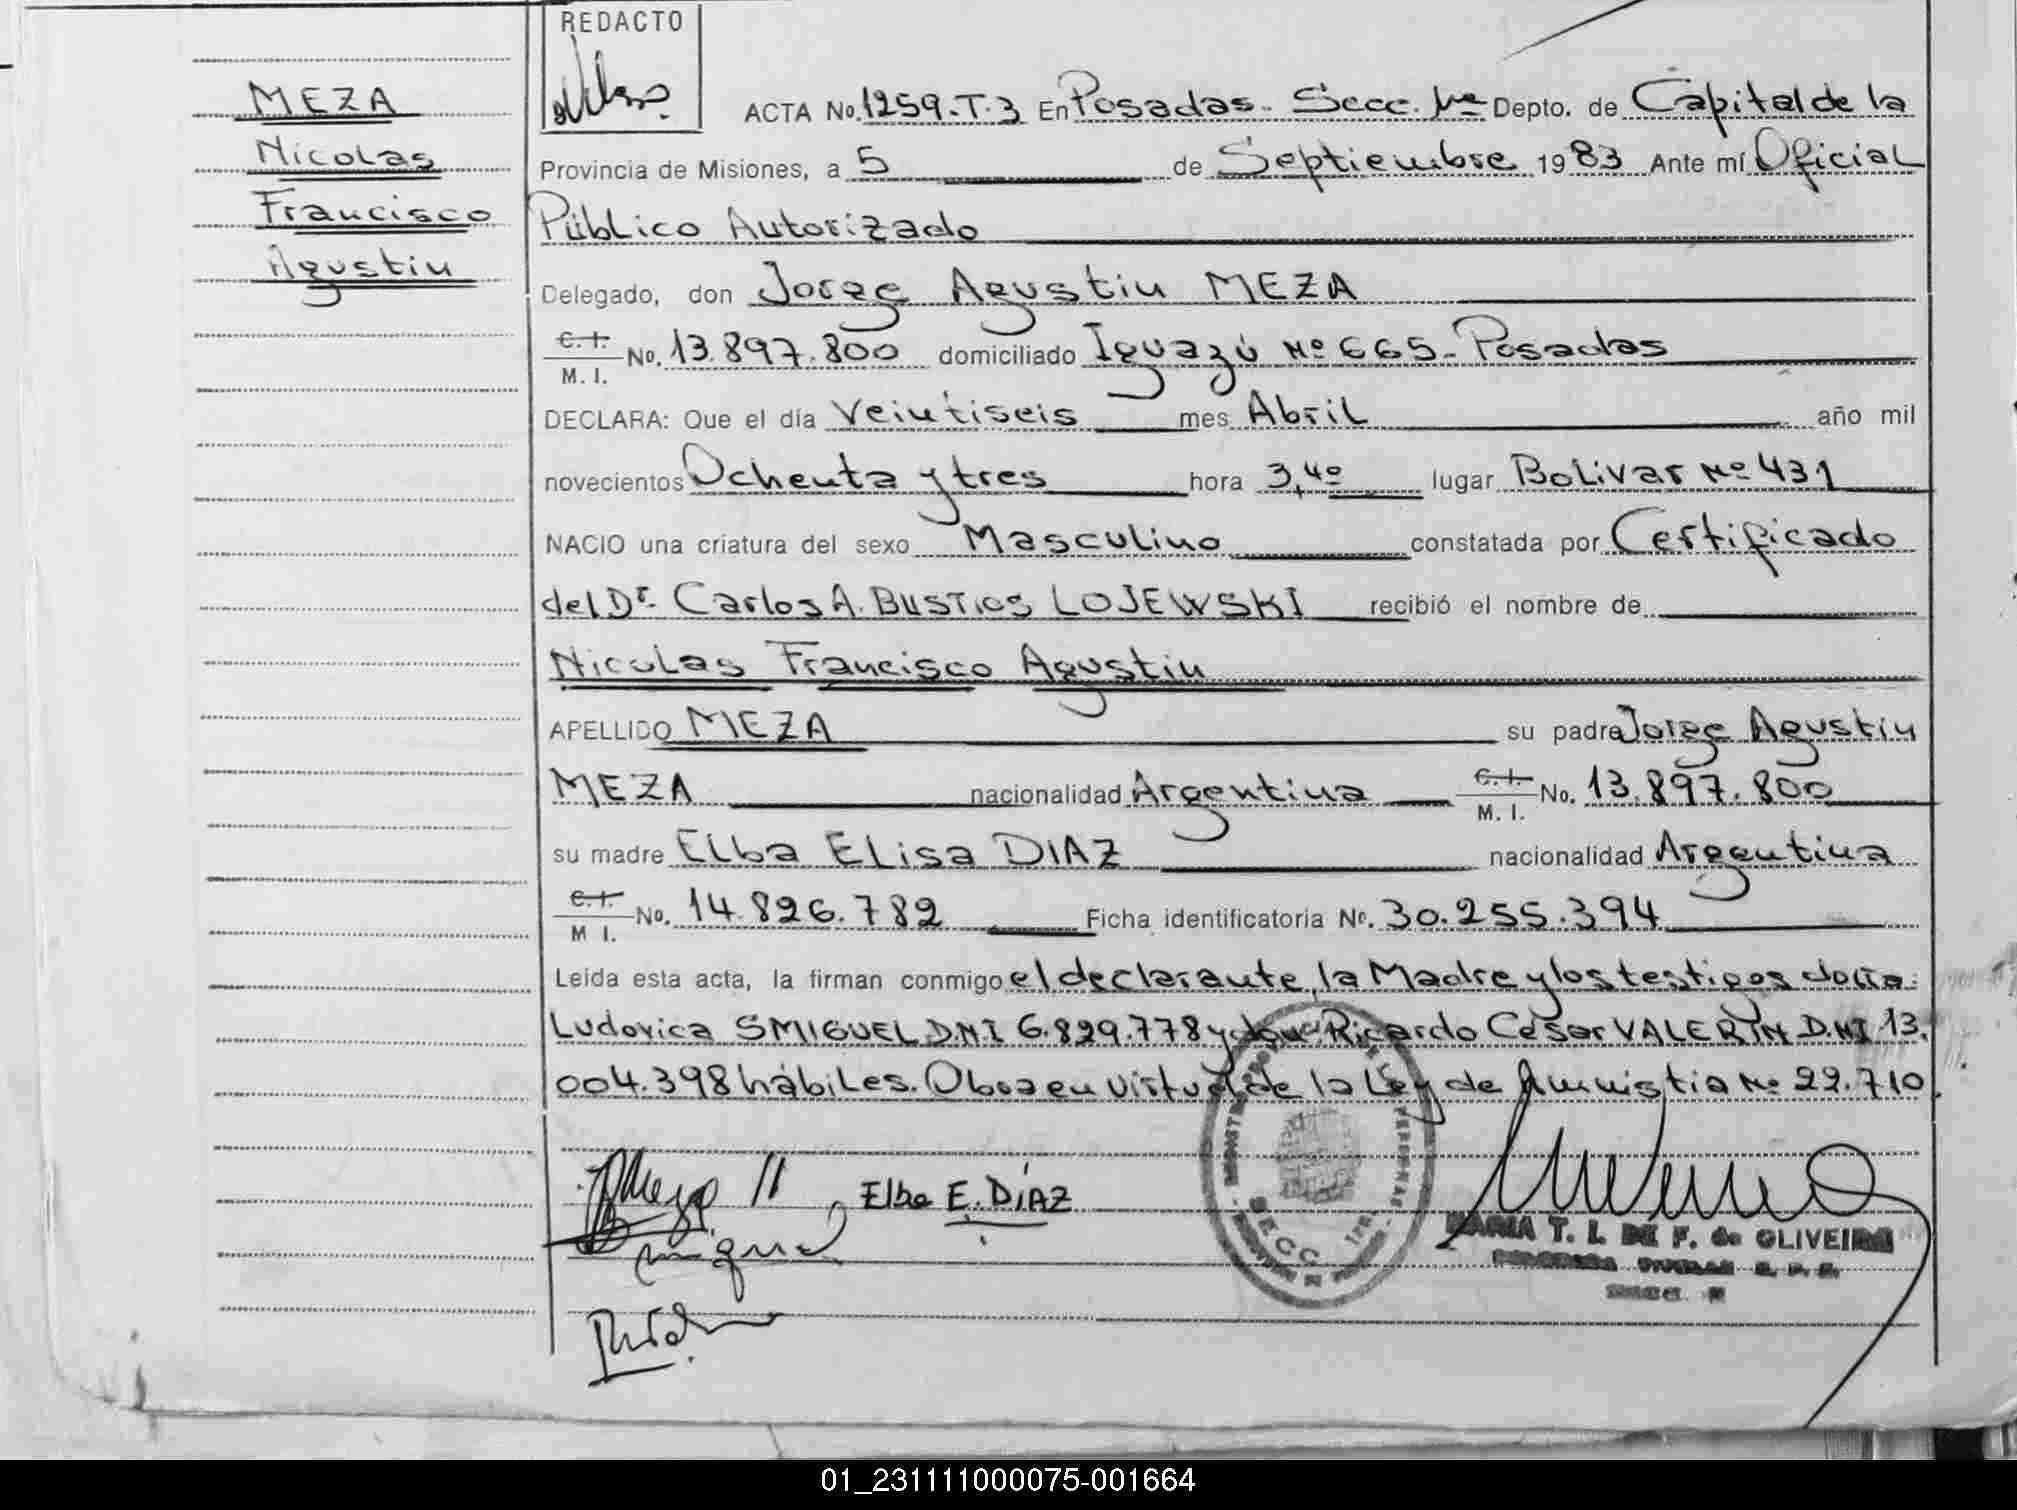 REDACTO
MEZA
Nicolas
Francisco
Agustin
ACTA No. 1259-T.3 En Posadas - Secc. 1ra Depto. de Capital de la
Provincia de Misiones, a 5 de Septiembre 1983 Ante mí Oficial
Público Autorizado
Delegado, don Jorge Agustin MEZA
C.I. / M. I. No. 13.897.800 domiciliado Iguazú Nº 665- Posadas
DECLARA: Que el día Veintiseis mes Abril año mil
novecientos Ochenta y tres hora 3,40 lugar Bolivar Nº 431
NACIO una criatura del sexo Masculino constatada por Certificado
del Dr. Carlos A. BUSTIOS LOJEWSKI recibió el nombre de
Nicolas Francisco Agustin
APELLIDO MEZA su padre Jorge Agustin
MEZA nacionalidad Argentina C.I. / M. I. No. 13.897.800
su madre Elba Elisa DIAZ nacionalidad Argentina
C.I. / M I. No. 14.826.782 Ficha identificatoria No. 30.255.394
Leída esta acta, la firman conmigo el declarante, la Madre y los testigos doña
Ludovica SMIGUEL D.N.I 6.829.778 y don Ricardo César VALERIN D.NI 13.
004.398 hábiles. Obra en virtud de la Ley de Amnistia Nº 22.710
Elba E. DÍAZ
MARIA T. I. DE F. de OLIVEIRA
01_231111000075-001664